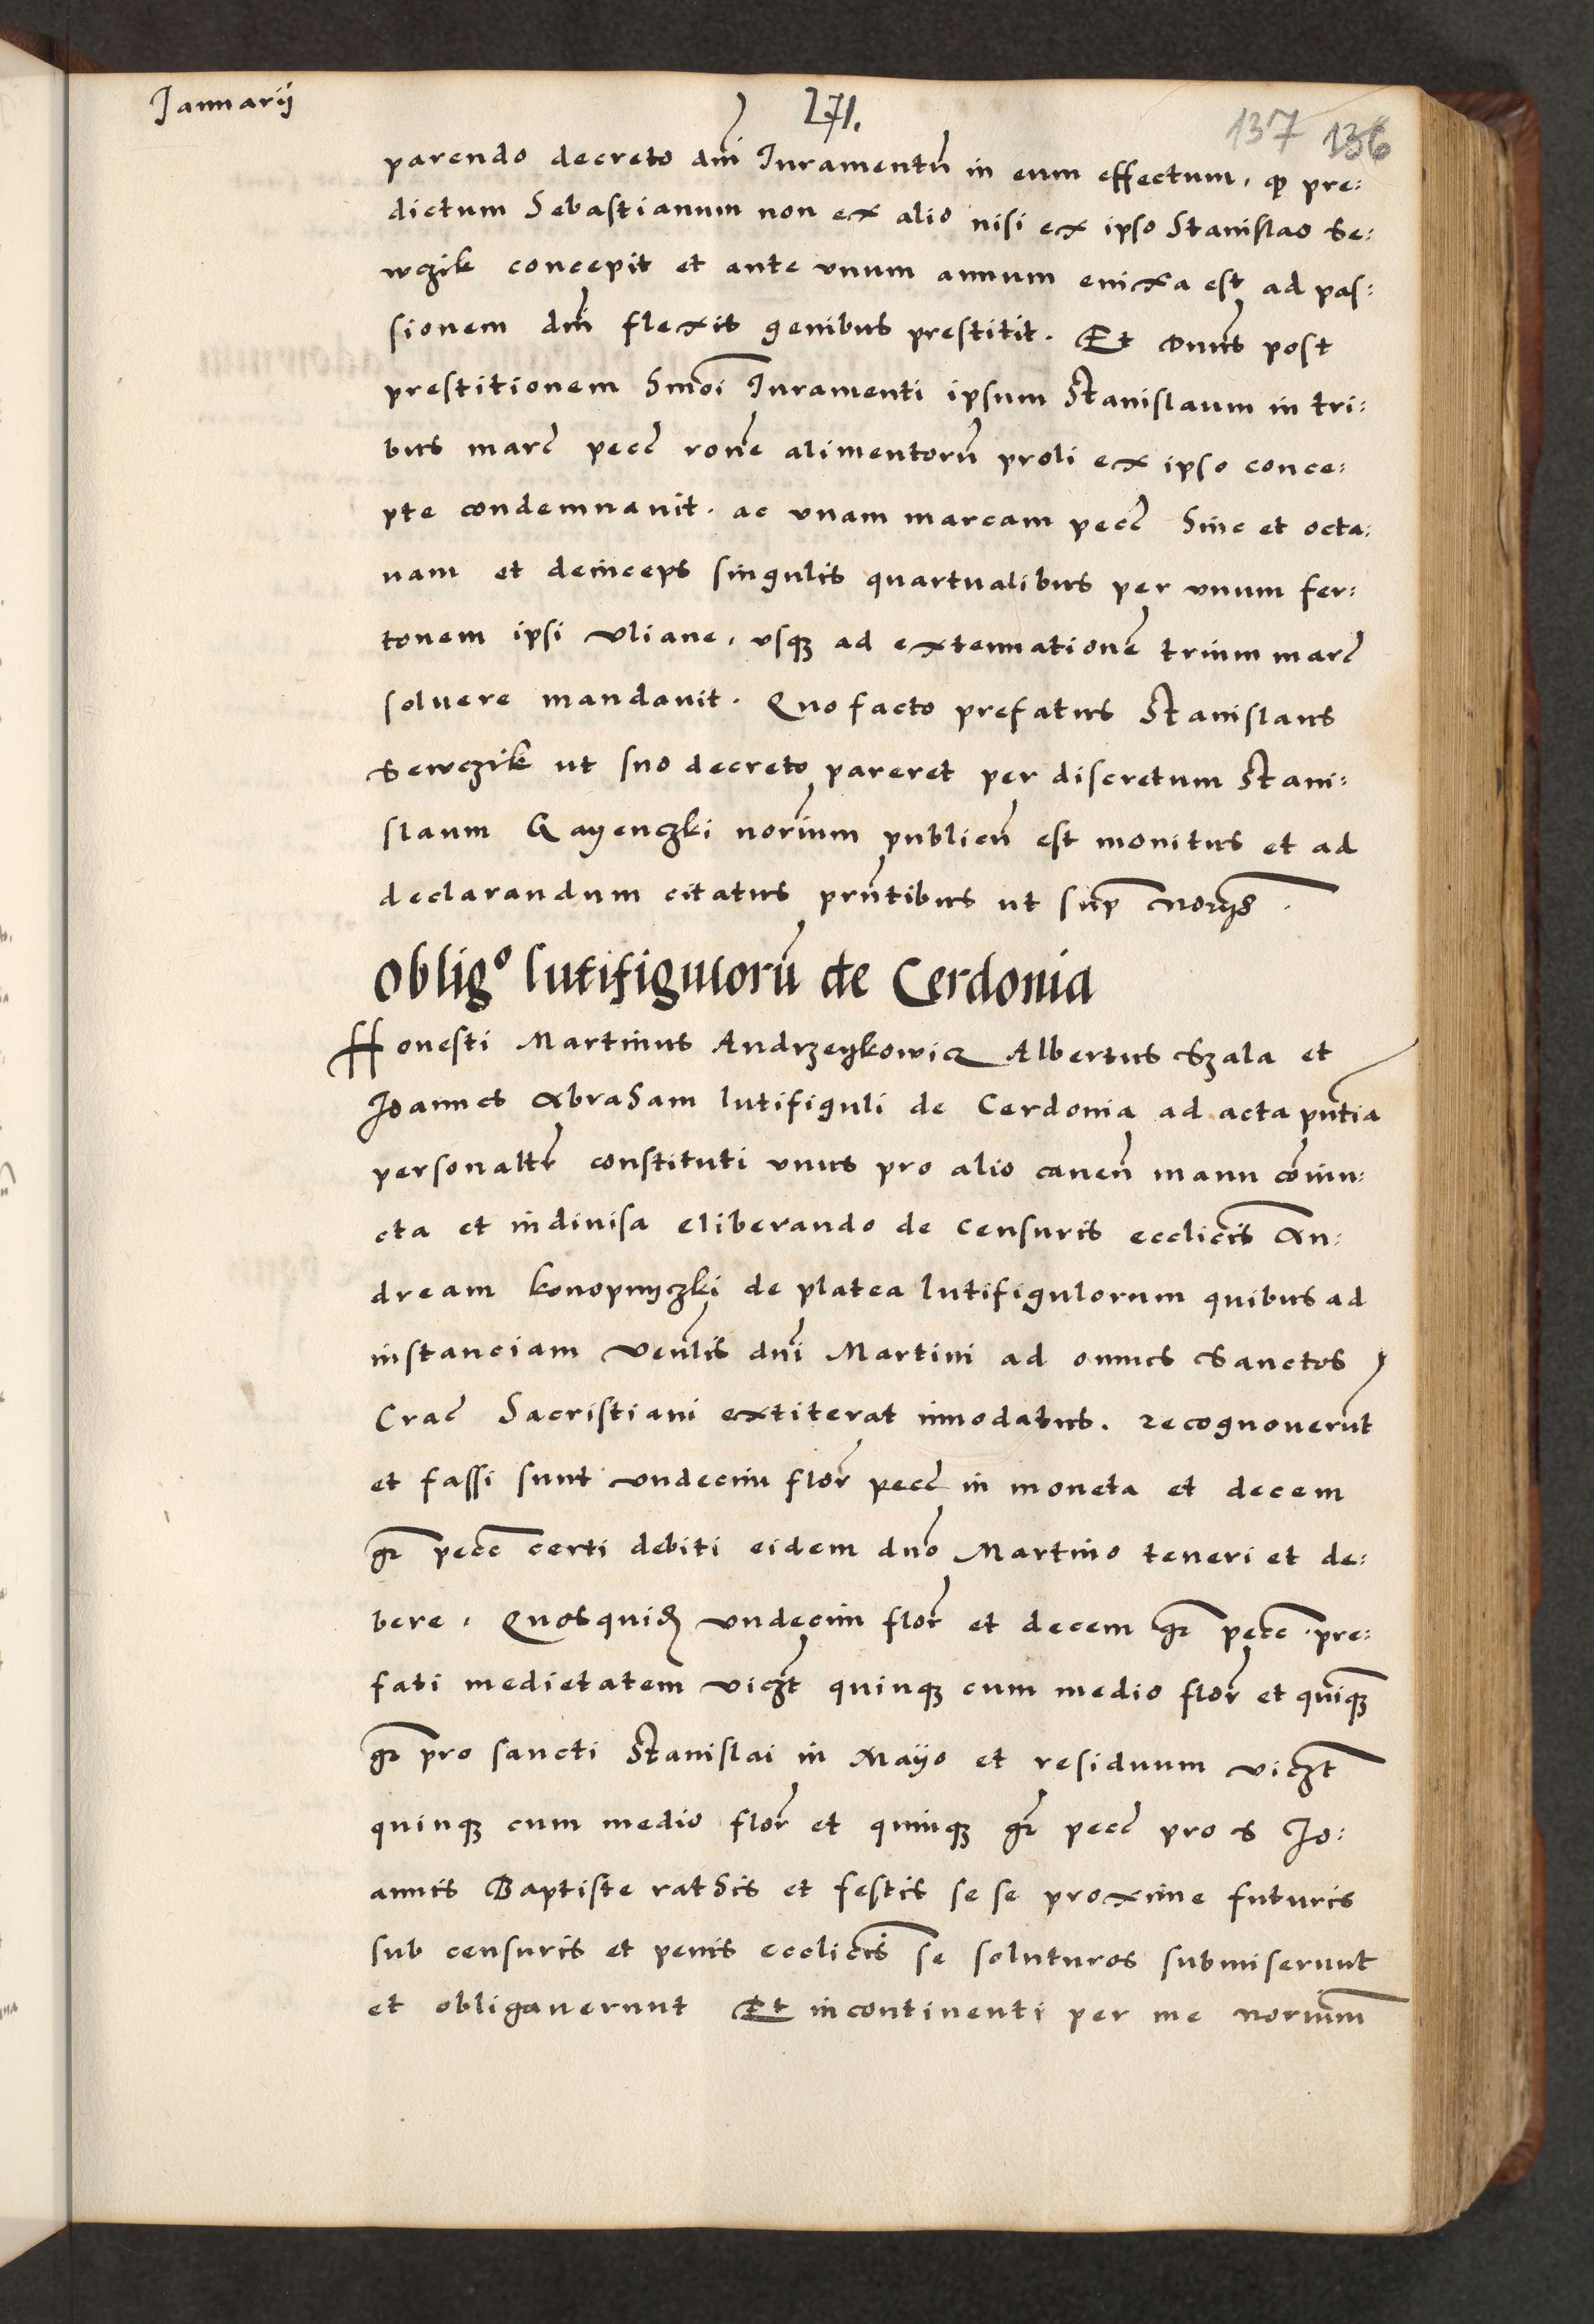 Januarij
271.
137 136
parendo decreto dni Juramentū in eum effectum, qꝫ pre:
dictum Sebastianum non ex alio nisi ex ipso Stanislao Se:
wczik concepit et ante vnum annum enixa est ad pas:
sionem dni flexis genibus prestitit. Et Dnus post
prestitionem hmoi Juramenti ipsum Stanislaum in tri:
bus marc pecc rone alimentorū proli ex ipso conce:
pte condemnauit. ac vnam marcam pecc hinc et octa:
uam et deinceps singulis quartualibus per vnum fer:
tonem ipsi vliane, vsqꝫ ad extenuationē trium marc
soluere mandauit. Quo facto prefatus Stanislaus
Sewczik ut suo decreto pareret per discretum Stani:
slaum Gayenczki norium publicū est monitus et ad
declarandum citatus pntibus ut sup norijs.
Obligo lutifigulorū de Cerdonia
Honesti Martinus Andrzeykowicz Albertus Szala et
Joannes Abraham lutifiguli de Cerdonia ad acta pntia
personaltr constituti vnus pro alio cauen manu coniu:
cta et indiuisa eliberando de censuris ecclicis An:
dream konopnyczki de platea lutifigulorum quibus ad
instanciam venlis dni Martini ad omnes Sanctos
Crac Sacristiani extiterat innodatus. recognouerūt
et fassi sunt vndecim flor pecc in moneta et decem
gr pecc certi debiti eidem dno Martino teneri et de:
bere. Quosquid vndecim flor et decem gr pecc pre:
fati medietatem viczt quinqꝫ cum medio flor et quiqꝫ
gr pro sancti Stanislai in Mayo et residuum viczt
quinqꝫ cum medio flor et quinqꝫ gr pecc pro S Jo:
annis Baptiste rathis et festis se se proxime futuris
sub censuris et penis ecclicis se soluturos submiserunt
et obligauerunt Et incontinenti per me norium